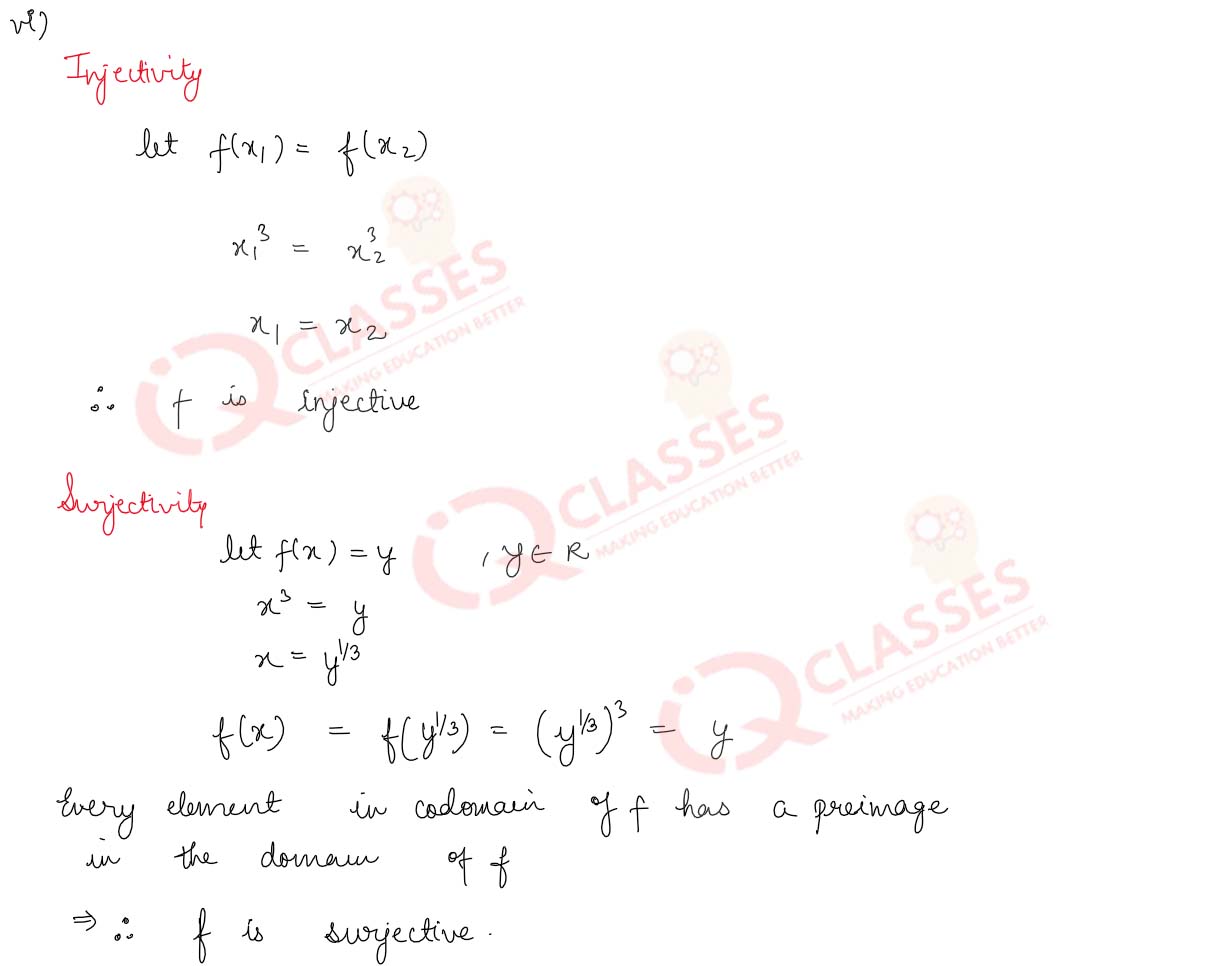 vi)
Injectivity
let f(x₁) = f(x₂)
x₁³ = x₂³
x₁ = x₂
∴ f is injective
Surjectivity
let f(x) = y , y ∈ R
x³ = y
x = y^1/3
f(x) = f(y^1/3) = (y^1/3)³ = y
Every element in codomain of f has a preimage
in the domain of f
⇒ ∴ f is surjective.
CLASSES
MAKING EDUCATION BETTER
CLASSES
MAKING EDUCATION BETTER
CLASSES
MAKING EDUCATION BETTER